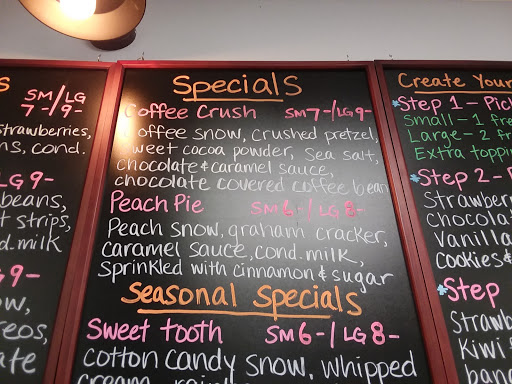 S
SM/LG
7-/9-
strawberries,
ns, cond.
LG 9-
beans,
t strips,
d.milk
9-
ow,
reos,
ate
Specials
Coffee Crush SM7-/LG9-
offee snow, crushed pretzel,
weet cocoa powder, sea salt,
chocolate & caramel sauce,
chocolate covered coffee bean
Peach Pie SM 6-/LG 8-
Peach snow, graham cracker,
caramel sauce, cond. milk,
sprinkled with cinnamon & sugar
Seasonal Specials
Sweet tooth SM6-/LG8-
cotton candy snow, whipped
cream
Create Your
*Step 1 - Pic
Small - 1 fre
Large - 2 fr
Extra toppin
*Step 2 - P
Strawberr
Chocolat
Vanilla
cookies &
*Step
Strawb
Kiwi
bana